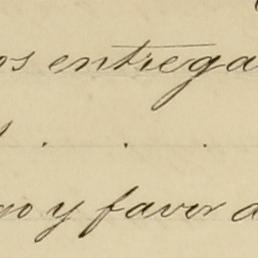 os entrega
. . .
go y favor d